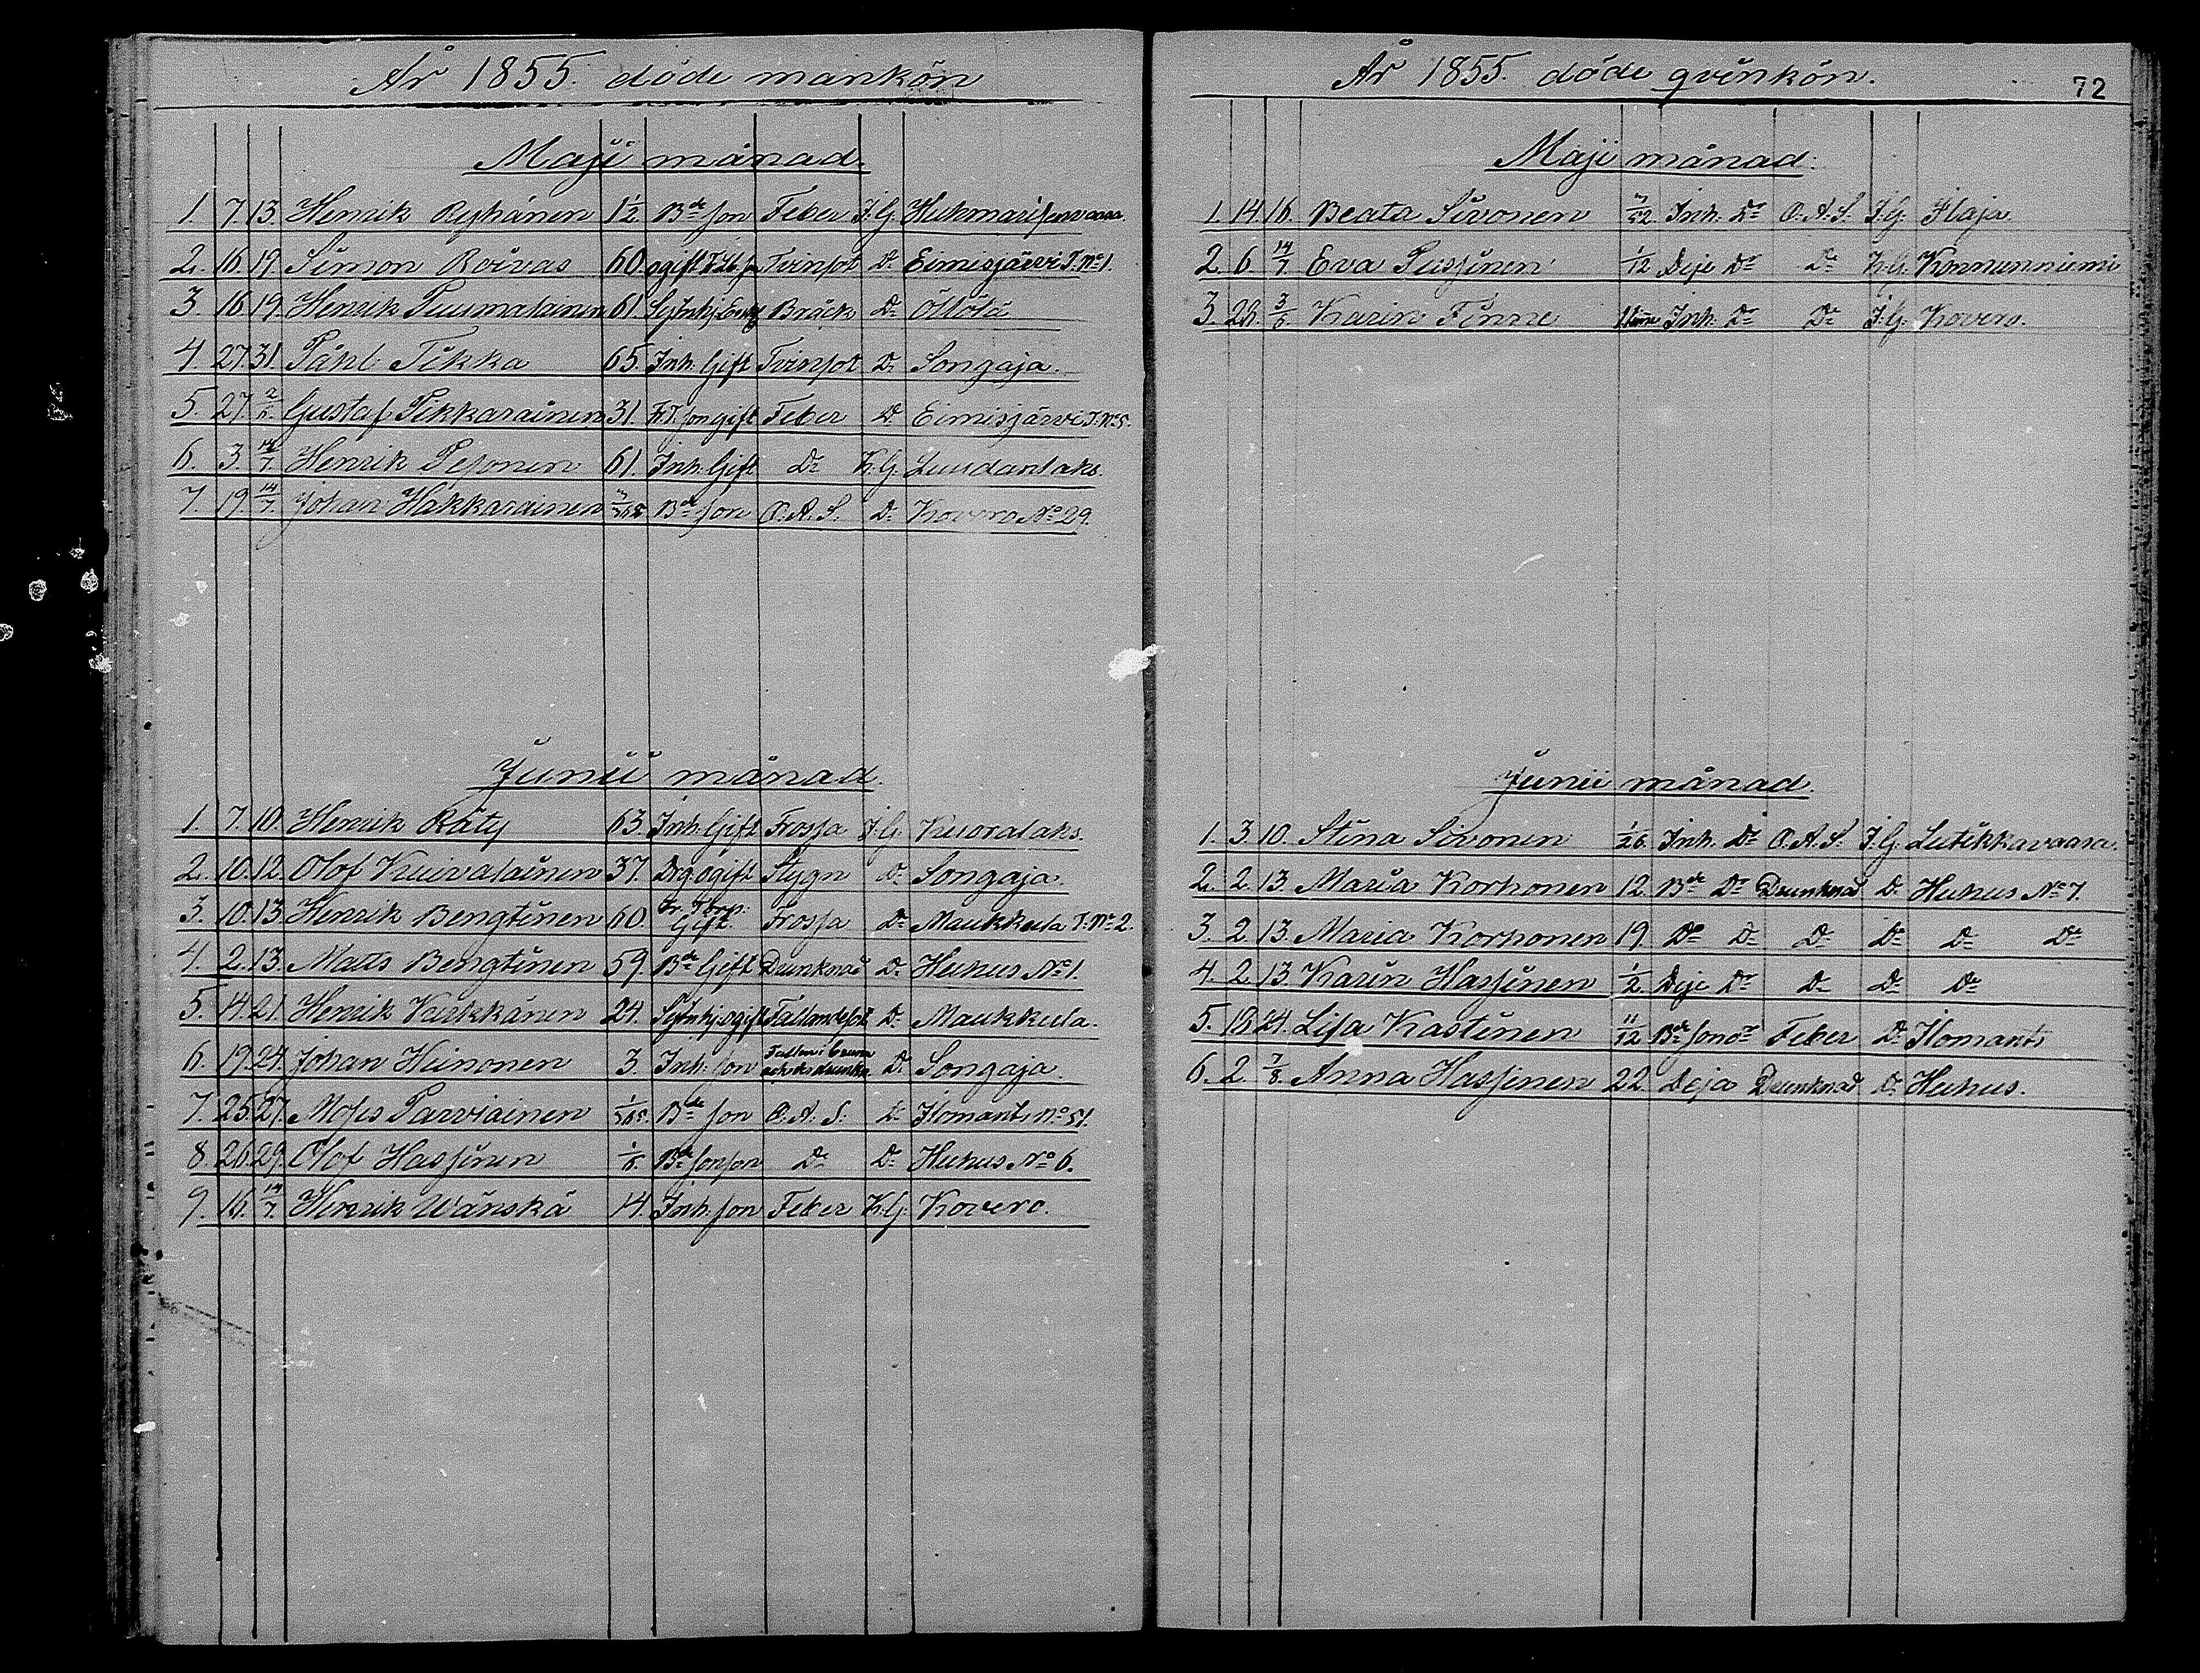 År 1855. döde mankön
Maji månad.
1. 7. 13. Henrik Ryhänen 1½ Bde son Feber I.G. Huhmarisenvaara
2. 16. 19. Simon Roivas 60 ogift Tvinsot Do Eimisjärvi T. No 1.
3. 16. 19. Henrik Puumalainen 61. Bräck Do Öllölä
4. 27. 31. Påhl Tikka 65. Inh. Gift Tvinsot Do Songaja.
5. 27. Gustaf Pikkarainen 31. son gift Feber Do Eimisjärvi T. No 5.
6. 3. 14/7. Henrik Pesonen 61. Inh. Gift Do K.G. Luudanlaks.
7. 19. 14/7. Johan Hakkarainen 3/365 Bde son O.A.S. Do Kovero No 29.
Junii månad.
1. 7. 10. Henrik Räty 63. Inh. Gift Frossa I.G. Kuoralaks.
2. 10. 12. Olof Kuivalainen 37. Drg ogift Stygn Do Songaja.
3. 10. 13. Henrik Bengtinen 60. Fr. Torp. Gift. Frossa Do Maukkula T. No 2.
4. 2. 13. Matts Bengtinen 59 Bde Gift Drunknad Do Huhus No 1.
5. 4. 21. Henrik Väikkänen 24. ogift Fallandesot Do Maukkula.
6. 19. 24. Johan Heinonen 3. Inh. son Fallen i brunn och dr drunkn. Do Songaja.
7. 25. 27. Moses Parviainen 1/365. Bde son O.A.S. Do Ilomants No 51.
8. 26. 29. Olof Hassinen 1/6. Bde sonson Do Do Huhus No 6.
9. 16. 14/7. Henrik Wänskä 14. Inh. son Feber K.G. Kovero.
År 1855. döde qvinkön.
72
Maji månad.
1. 14. 16. Beata Sivonen 3/52. Inh. Dr O.A.S. I.G. Ilaja
2. 6. 14/7. Eva Pussinen 1/12 Deje Dr Do K.G. Konnunniemi
3. 28. 3/6. Karin Finne 1 timme Inh. Dr Do I.G. Kovero.
Junii månad.
1. 3. 10. Stina Sivonen 1/26. Inh. Dr O.A.S. I.G. Lutikkavaara.
2. 2. 13. Maria Korhonen 12. Bde Dr Drunknad Do Huhus No 7.
3. 2. 13. Maria Korhonen 19. Do Do Do Do Do Do
4. 2. 13. Karin Hassinen ½. Deje Dr Do Do Do
5. 18. 24. Lisa Kastinen 11/12 Bde sondr Feber Do Ilomants
6. 2. 7/8. Anna Hassinen 22. Deja Drunknad Do Huhus.